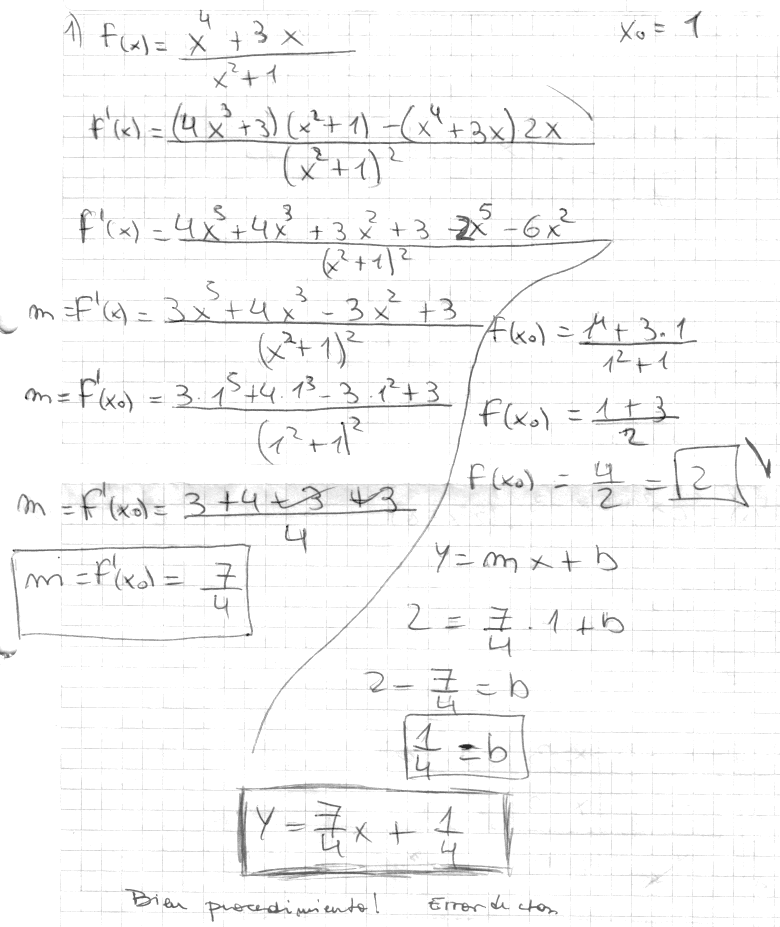 1) f(x) = (x^4 + 3x)/(x^2 + 1)    x₀ = 1
f'(x) = ((4x^3 + 3)(x^2 + 1) - (x^4 + 3x) 2x)/(x^2 + 1)^2
f'(x) = (4x^5 + 4x^3 + 3x^2 + 3 - 2x^5 - 6x^2)/(x^2 + 1)^2
m = F'(x) = (3x^5 + 4x^3 - 3x^2 + 3)/(x^2 + 1)^2
m = F'(x₀) = (3 · 1^5 + 4 · 1^3 - 3 · 1^2 + 3)/(1^2 + 1)^2
m = F'(x₀) = (3 + 4 - 3 + 3)/4
m = F'(x₀) = 7/4
f(x₀) = (1^4 + 3 · 1)/(1^2 + 1)
f(x₀) = (1 + 3)/2
f(x₀) = 4/2 = 2
y = mx + b
2 = 7/4 · 1 + b
2 - 7/4 = b
1/4 = b
y = 7/4 x + 1/4
Bien procedimiento! Error de